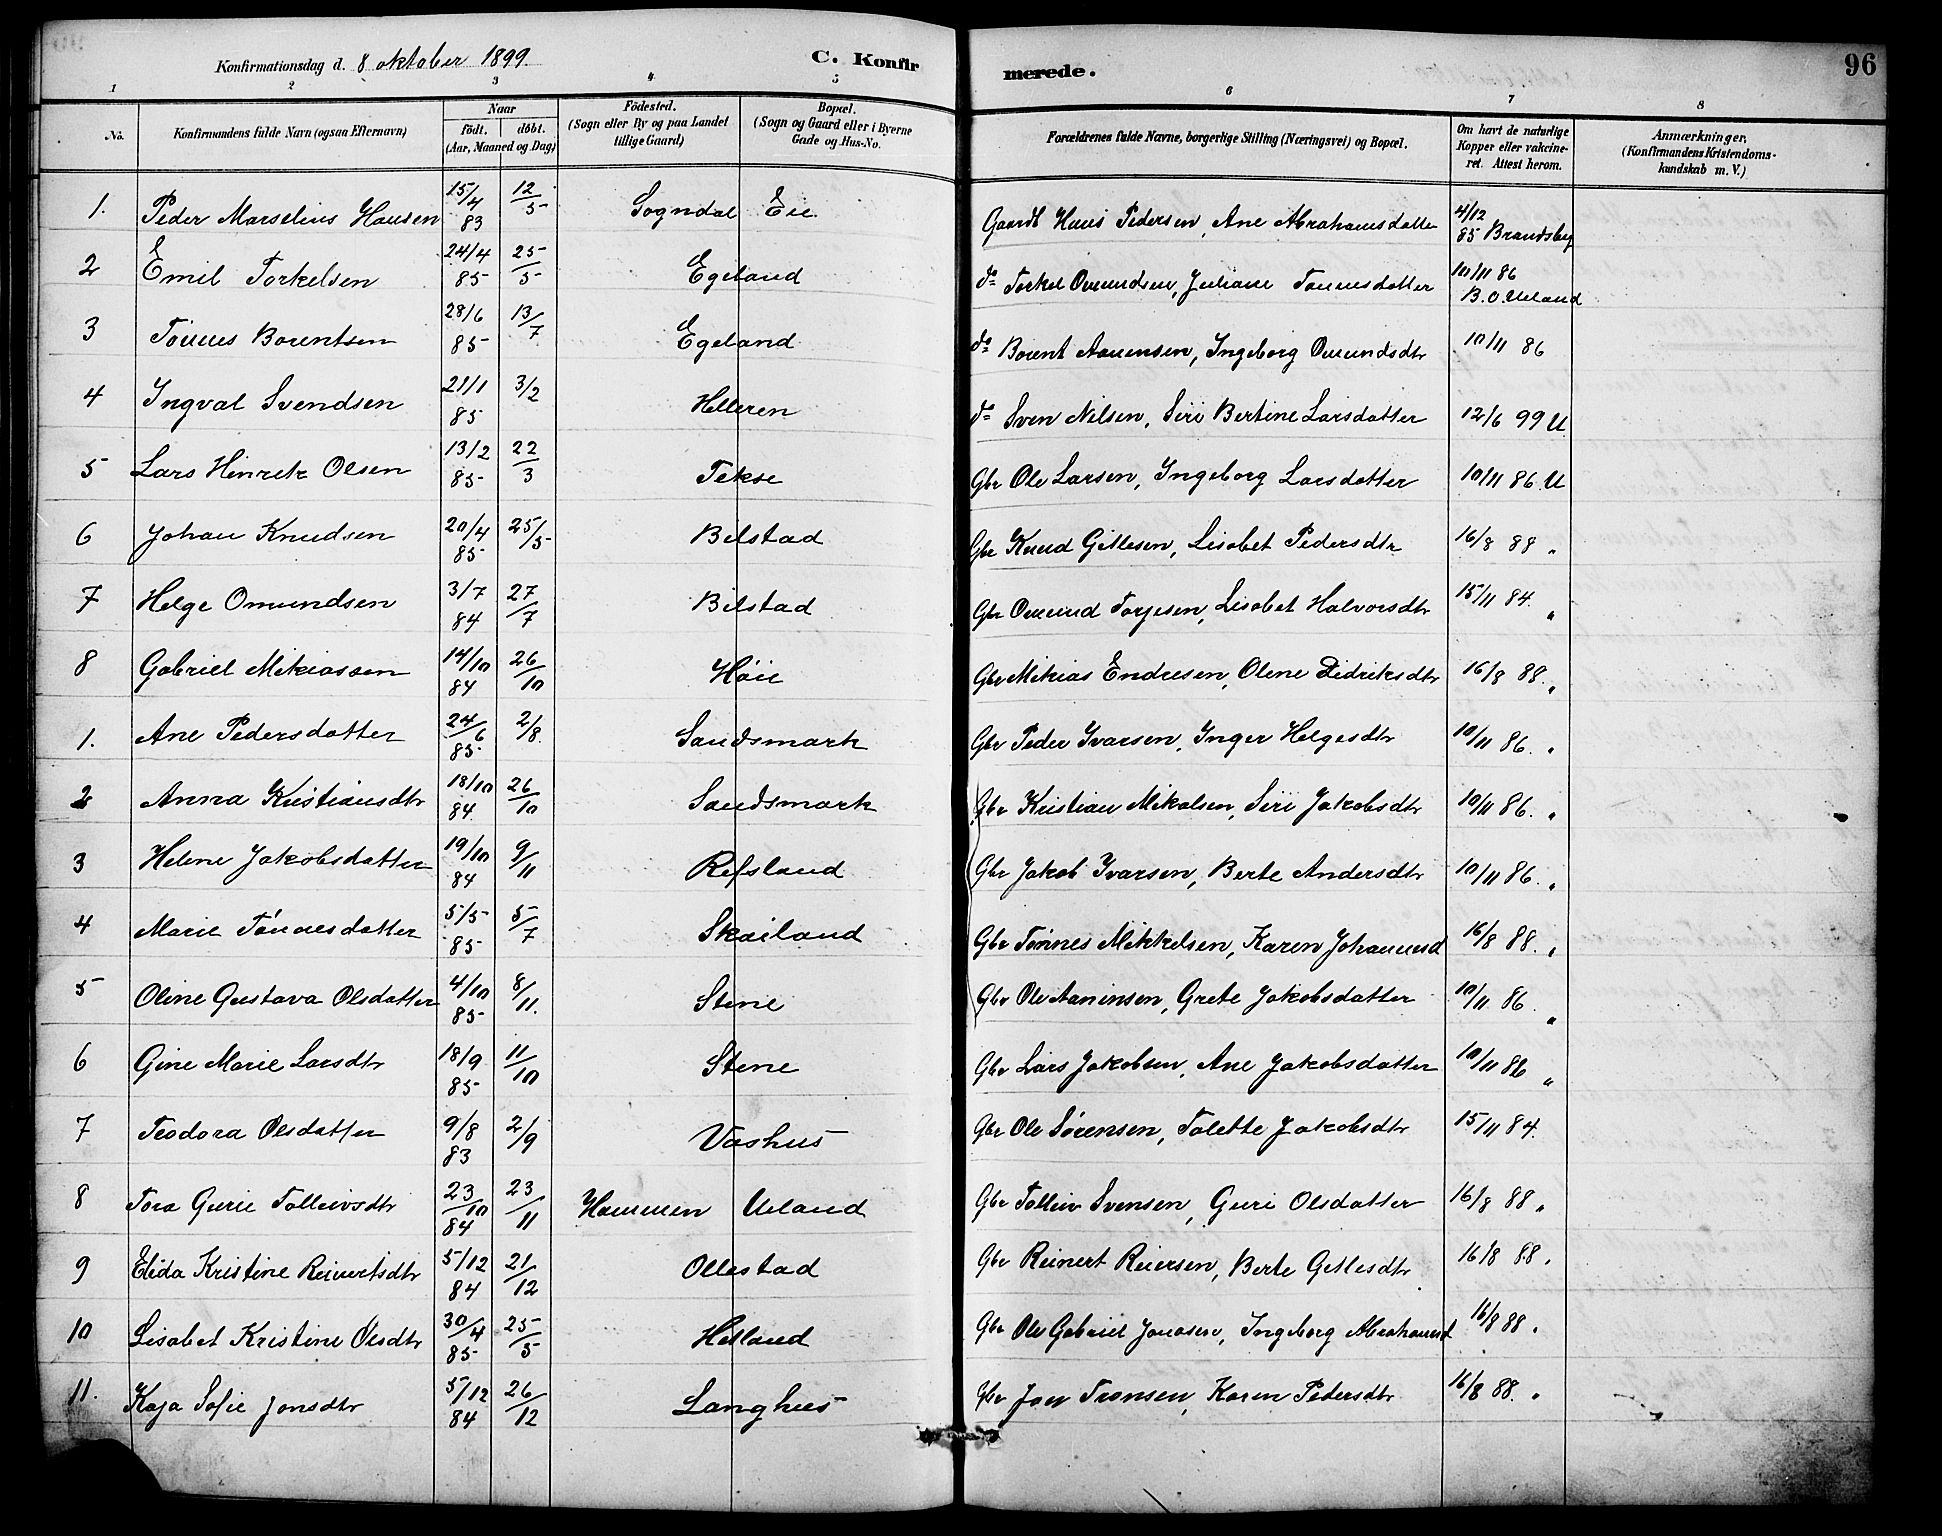 Konfirmationsdag d. 8 oktober 1899.
C. Konfirmerede.
96
1 2 3 4 5 6 7 8
No.
Konfirmandens fulde Navn (ogsaa Efternavn)
Naar
födt. döbt.
(Aar, Maaned og Dag)
Födested.
(Sogn eller By og paa Landet
tillige Gaard)
Bopæl.
(Sogn og Gaard eller i Byerne
Gade og Hus-No.
Forældrenes fulde Navne, borgerlige Stilling (Næringsvei) og Bopæl.
Om havt de naturlige
Kopper eller vakcine-
ret. Attest herom.
Anmærkninger,
(Konfirmandens Kristendoms-
kundskab m. V.)
1. Peder Marselius Hansen 15/4 83 12/5 Sogndal Eie Gaardb Hans Pedersen, Ane Abrahamsdatter 4/12 85 Brandsberg
2 Emil Torkelsen 24/4 85 25/5 Egeland do Torkel Omundsen, Juliane Tønnesdatter 10/11 86 B. O. Ueland
3 Tønnes Borentsen 28/6 85 13/7 Egeland do Borent Aanensen, Ingeborg Omundsdtr 10/11 86
4 Ingval Svendsen 21/1 85 3/2 Helleren do Sven Nilsen, Siri Bertine Larsdatter 12/6 99 U.
5 Lars Hinrek Olsen 13/2 85 22/3 Tekse Gbr Ole Larsen, Ingeborg Larsdatter 10/11 86. U
6 Johan Knudsen 20/4 85 25/5 Bilstad Gbr Knud Gitlesen, Lisabet Pedersdtr 16/8 88 "
7 Helge Omundsen 3/7 84 27/7 Bilstad Gbr Omund Torjesen, Lisabet Halvorsdtr 15/11 84. "
8 Gabriel Mikiassen 14/10 84 26/10 Høie Gbr Mikias Endresen, Olene Didriksdtr 16/8 88. "
1. Ane Pedersdatter 24/6 85 2/8. Sandsmark Gbr Peder Ivarsen, Inger Helgesdtr 10/11 86. "
2 Anna Kristiansdtr 18/10 84. 26/10 Sandsmark Gbr Kristian Mikalsen, Siri Jakobsdtr 10/11 86. "
3 Helene Jakobsdatter 19/10 84 9/11 Refsland Gbr Jakob Ivarsen, Berte Andersdtr 10/11 86. "
4 Marie Tønnesdatter 5/5 85 5/7 Skailand Gbr Tønnes Mikkelsen, Karen Johannesd 16/8 88. "
5 Oline Gustava Olsdatter 4/10 85 8/11. Stene Gbr Ole Aanensen, Grete Jakobsdatter 10/11 86. "
6 Gine Marie Larsdtr 18/9 85 11/10 Stene Gbr Lars Jakobsen, Ane Jakobsdatter 10/11 86 "
7 Teodora Olsdatter 9/8 83 2/9 Vashus Gbr Ole Sørensen, Talette Jakobsdtr 15/11 84.
8 Tora Gurie Tolleivsdtr 23/10 84 23/11 Hammen Ueland Gbr Tolleiv Svensen, Guri Olsdatter 16/8 88 "
9 Elida Kristine Reinertsdtr 5/12 84 21/12 Ollestad Gbr Reinert Reiersen, Berte Gitlesdtr 16/8 88 "
10 Lisabet Kristine Olsdtr 30/4 85 25/5 Hetland Gbr Ole Gabriel Jonasen, Ingeborg Abrahamsd 16/8 88 "
11. Kaja Sofie Jonsdtr 5/12 84 26/12 Langhus Gbr Jon Tronsen, Karen Pedersdtr 16/8 88. "